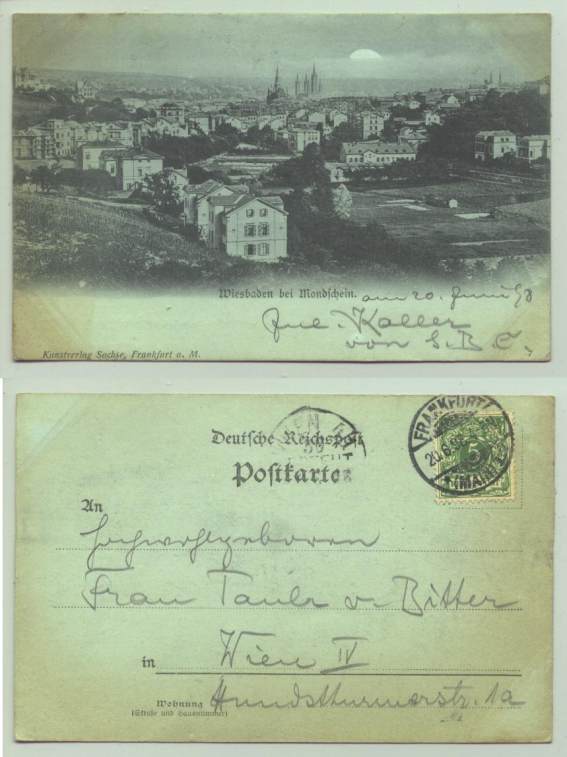 Wiesbaden bei Mondschein. am 20. Juni 98
Kaller
von S. B. C.
Kunstverlag Sachse, Frankfurt a. M.
Deutsche Reichspost
Postkarte
FRANKFURT
20.6.98
1 (MAIN)
5
An
Hochwohlgeboren
Frau Paula v. Bitter
in Wien IV
Wohnung Hundsthurmerstr. 1a
(Straße und Hausnummer)